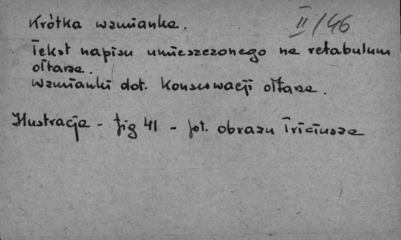 Krótka wzmianka.
II/46
Tekst napisu umieszczonego na retabulum
ołtarza.
Wzmianki dot. Konserwacji ołtarza.
Ilustracja - fig 41 - fot. obrazu Triciusza